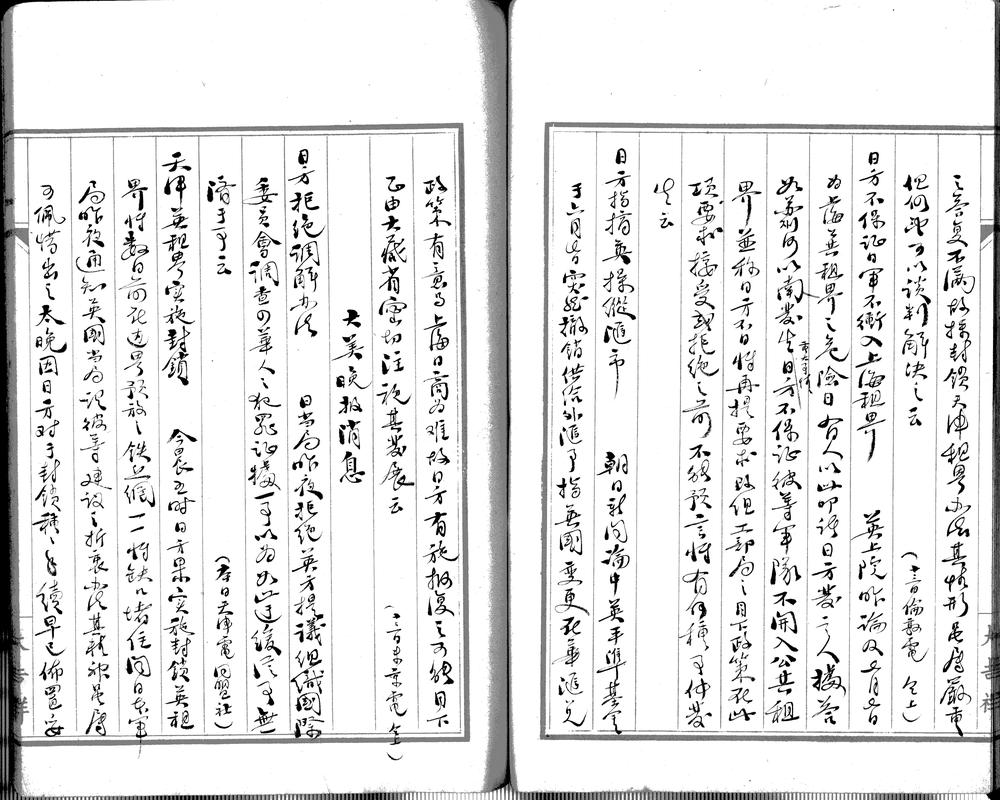 之答复不满故採封鎖天津租界办法其情形是屬嚴重
但何時可以談判解決之云　（十三日倫敦電　仝上）
日方不保証日軍不衝入上海租界　英上院昨論及五月廿日
為上海英租界之危險日有人以此叩諸日方發言人據答
如蘇州河以南發生日方不保証彼等軍隊不開入公共租
界並称日方不日將再提要求改組工部局之目下政策在此
項要求接受或拒绝之前不能預言將有何種事件發
生云
日方指摘英操縱滙市　朝日新聞論中英平準基金
于六月七日突然撤銷供給外滙事指英國變更在華滙兌
政策有意与上海日商為难故日方有施报復之可能目下
已由大藏省密切注視其發展云　（十三日東京電　仝上）
大美晚报消息
日方拒绝調解办法　日当局昨夜拒绝英方提議組織國際
委員會調查四華人之犯罪证據一事以為如此迁緩處事無
濟于事云　（本日天津電　同盟社）
天津英租界實施封鎖　今晨五时日方果实施封鎖英租
界將数日前在边界预放之铁丝網一一將缺口堵住聞日本軍
局昨夜通知英國当局説彼等建議之折衷办法其精神是屬
可佩惜出之太晚因日方对于封鎖種種手續早已佈置妥